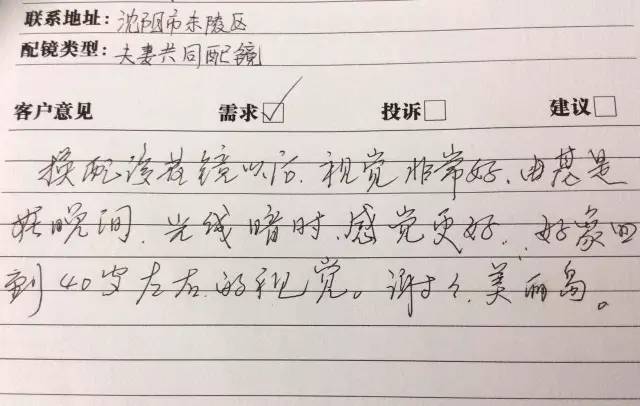 联系地址：沈阳市东陵区
配镜类型：夫妻共同配镜
客户意见 需求☑ 投诉□ 建议□
换配该花镜以后、视觉非常好、由其是
在晚间、光线暗时、感觉更好、好象回
到40岁左右的视觉。谢谢、美丽岛。